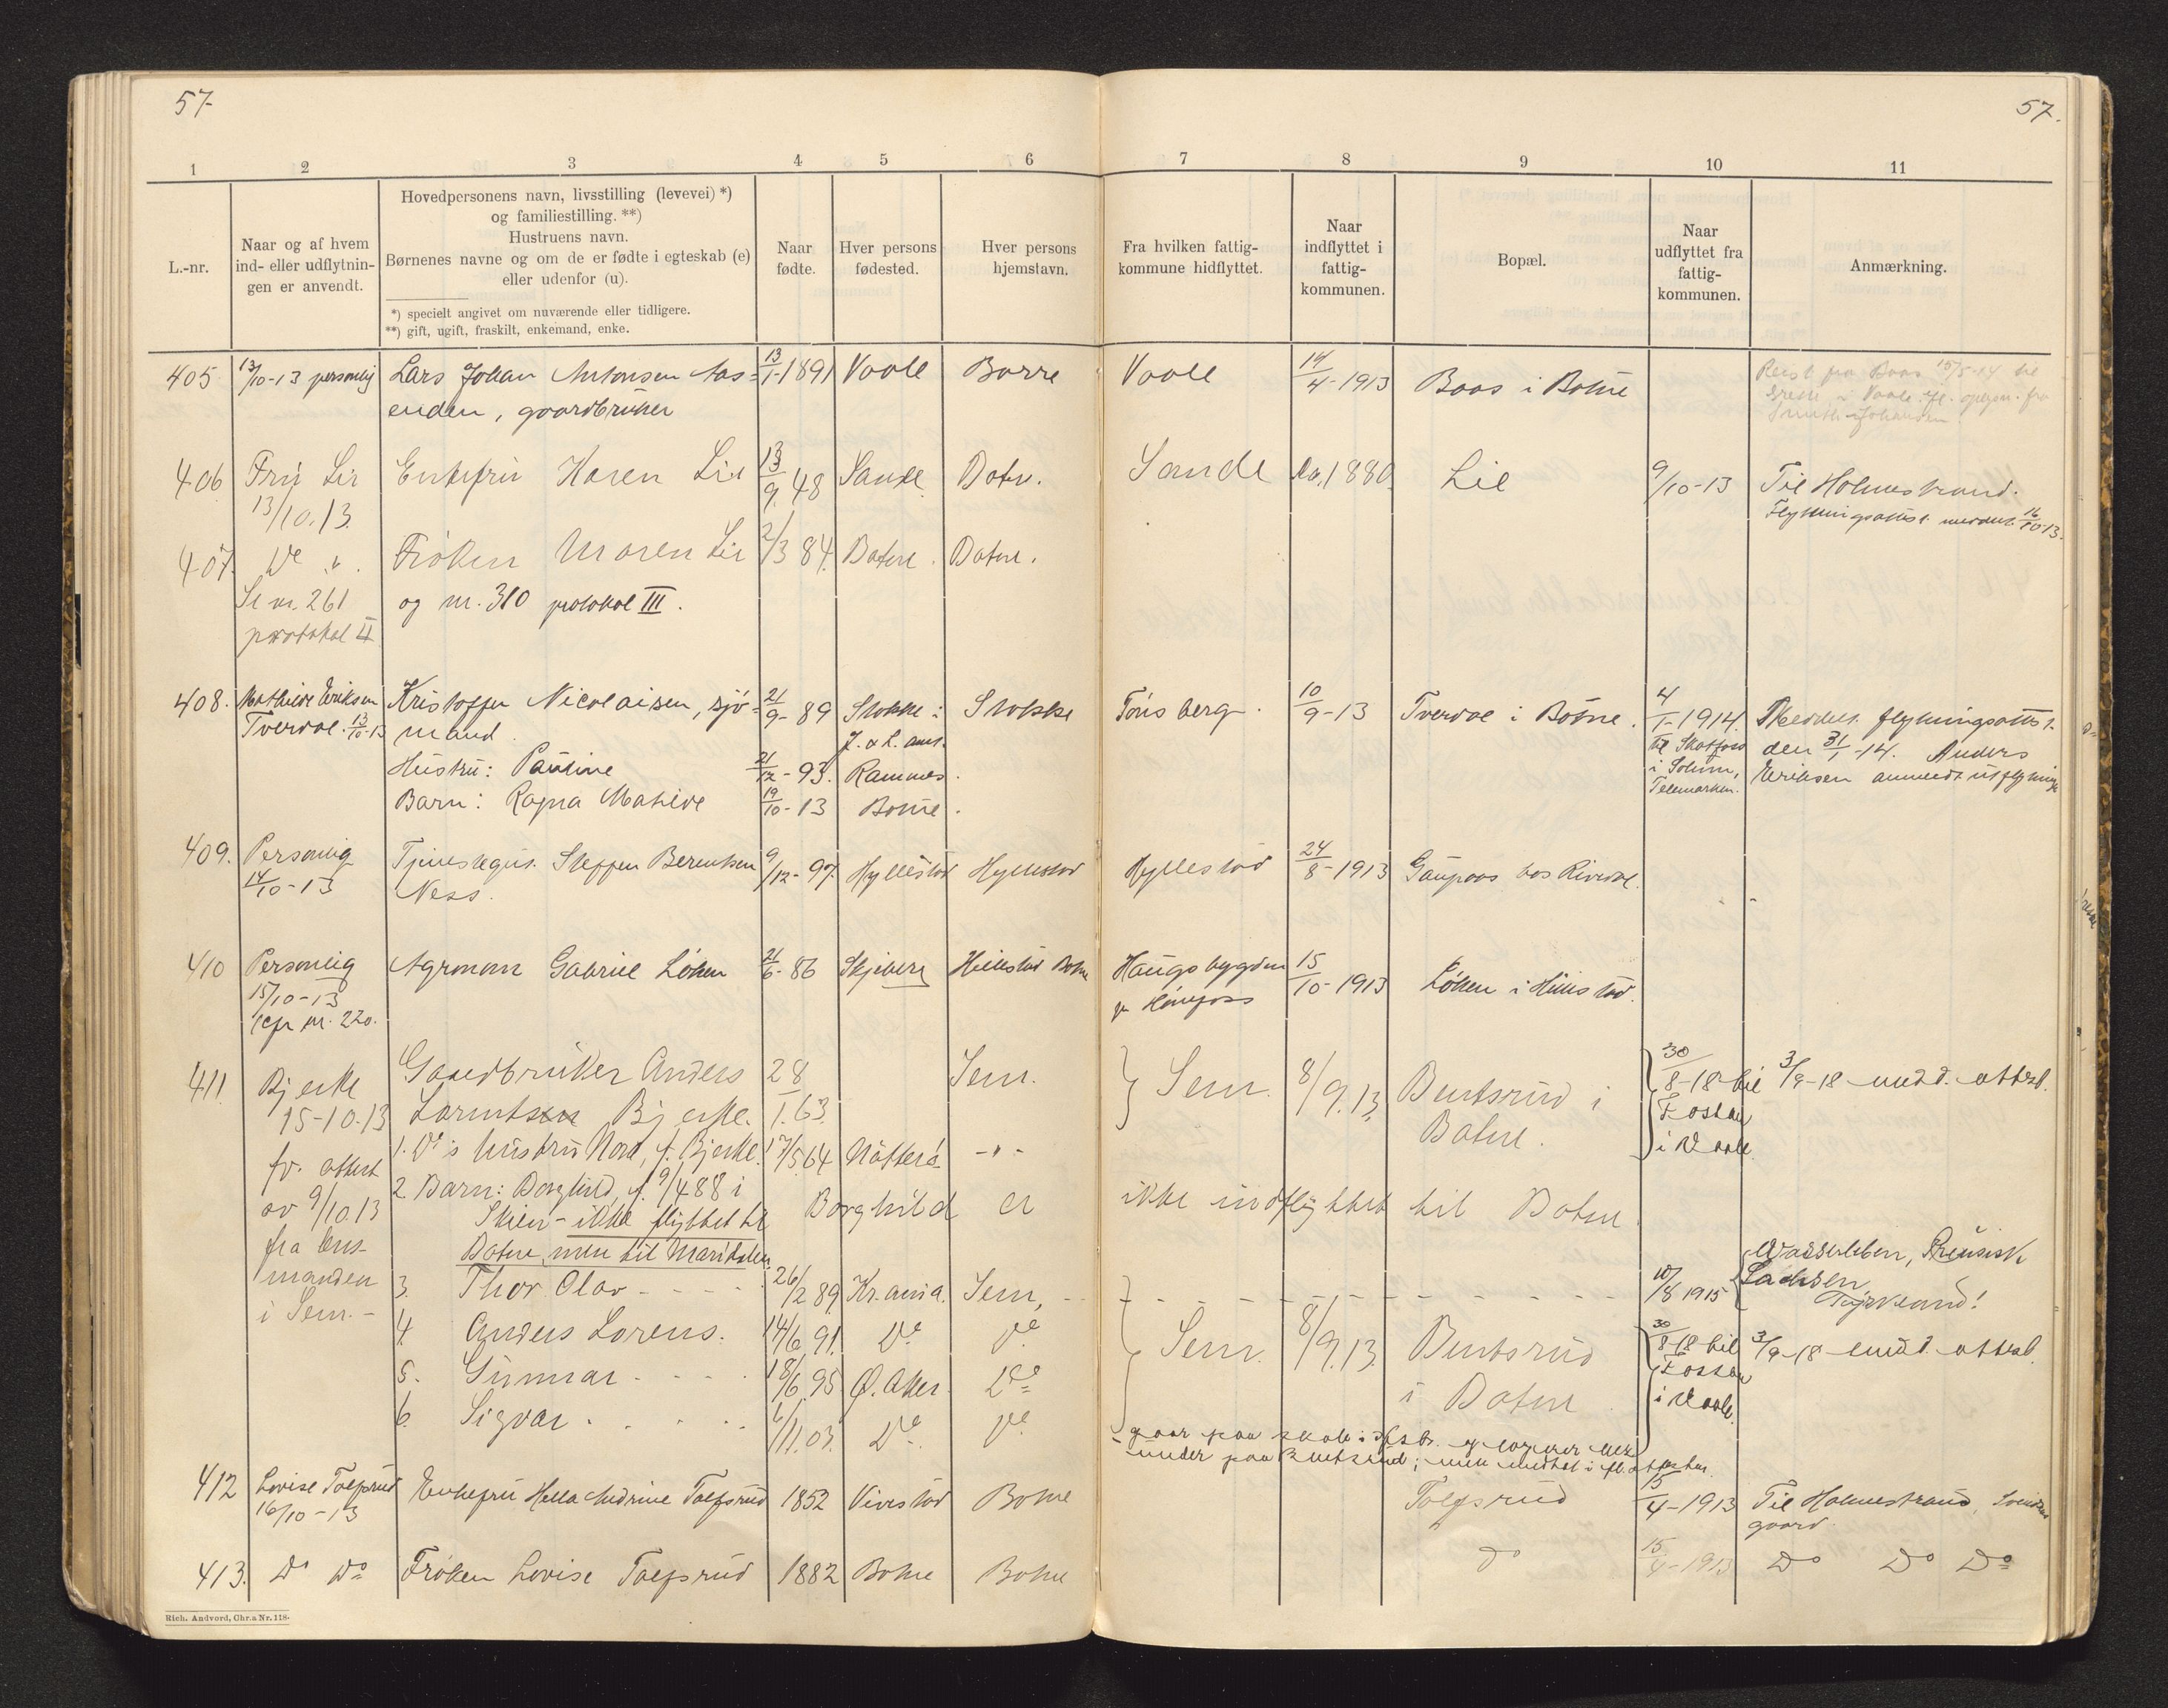 57.
57.
1 2 3 4 5 6 7 8 9 10 11
L.-nr.
Naar og af hvem
ind- eller udflytnin-
gen er anvendt.
Hovedpersonens navn, livsstilling (levevei) *)
og familiestilling. **)
Hustruens navn.
Børnenes navne og om de er fødte i egteskab (e)
eller udenfor (u).
*) specielt angivet om nuværende eller tidligere.
**) gift, ugift, fraskilt, enkemand, enke.
Naar
fødte.
Hver persons
fødested.
Hver persons
hjemstavn.
Fra hvilken fattig-
kommune hidflyttet.
Naar
indflyttet i
fattig-
kommunen.
Bopæl.
Naar
udflyttet fra
fattig-
kommunen.
Anmærkning.
405 13/10-13 personlig Lars Johan Antonsen Aas- 13/1-1891 Vaale Borre Vaale 14/4-1913 Baas i Botne
enden, gaardbruker
Reist fra Baas 15/5-14 til
i Vaale
406 Fru Lie Enkefru Karen Lie 13/9 48 Sande Botn. Sande 1880 Lie 9/10-13 Til Holmestrand.
13/10.13. Flytningsattest meddelt 16/10-13.
407. Do " . Frøken Maren Lie 2/3 84. Botne. Botne.
Se nr. 261 og nr. 310 protokol III.
protokol II
408. Mathilde Eriksen Kristoffer Nicolaisen, sjø- 21/9-89 Stokke i Stokke Tønsberg. 10/9-13 Tverdal i Botne. 4/1-1914 Meddelt flytningsattest
Tverdal. 13/10-13 mand. J. & L. amt. til Skotfoss den 31/1-14. Anders
Hustru: Pauline 21/12-93. Ramnes. i Solum, Eriksen anmeldt utflytning
Barn: Ragna Matilde 19/10-13 Botne. Telemarken.
409. Personlig Tjenestegut. Steffen Berentsen 9/12-97 Hyllestad Hyllestad Hyllestad 24/8-1913 Gaupaas hos Riverdal.
14/10-13 Ness.
410 Personlig Agronom Gabriel Løken 21/6-86 Skjeberg Hillestad Botne Haugsbygden 15/10-1913 Løken i Hillestad.
15/10-13 pr Hønefoss
(cfr nr. 220.
411. Bjerke Gaardbruker Anders 28 Sem. Sem. 8/9.13. Bentsrud i 30/8-18 til 3/9-18 medd. attest.
15-10.13 Lorentsen Bjerke. 1.63. Botne. Fossan
i Vaale.
fv. attest 1. Do's hustru Nora, f. Bjerke. 17/5 64 Nøtterø -"-
av 9/10.13 2. Barn: Borghild, f. 9/4 88 i Borghild er ikke indflyttet til Botne.
Skien - ikke flyttet til
fra lens- Botne, men til Maridalen.
manden 3. Thor Olav 26/2 89 Kr.ania. Sem, 10/8 1915 Wasserleben, Preusisk
Sachsen
i Sem.- Tyskland!
4. Anders Lorens. 14/6 91. Do Do Sem. 8/9.13. Bentsrud 30/8-18 til 3/9-18 medd. attest.
5. Gunnar 18/6 95 Ø. Aker. Do i Botne. Fossan
6. Sigvar 6/11.03. Do Do i Vaale.
gaar paa skole i
under paa Bentsrud; men meldt i fl.attesten.
412 Lovise Tolfsrud Enkefru Hella Andrine Tolfsrud 1852 Vivestad Botne Tolfsrud 15/4-1913 Til Holmestrand,
16/10-13 gaard.
413. Do Do Frøken Lovise Tolfsrud 1882 Botne Botne Do 15/4-1913 Do Do Do
Rich. Andvord, Chr.a Nr. 118.